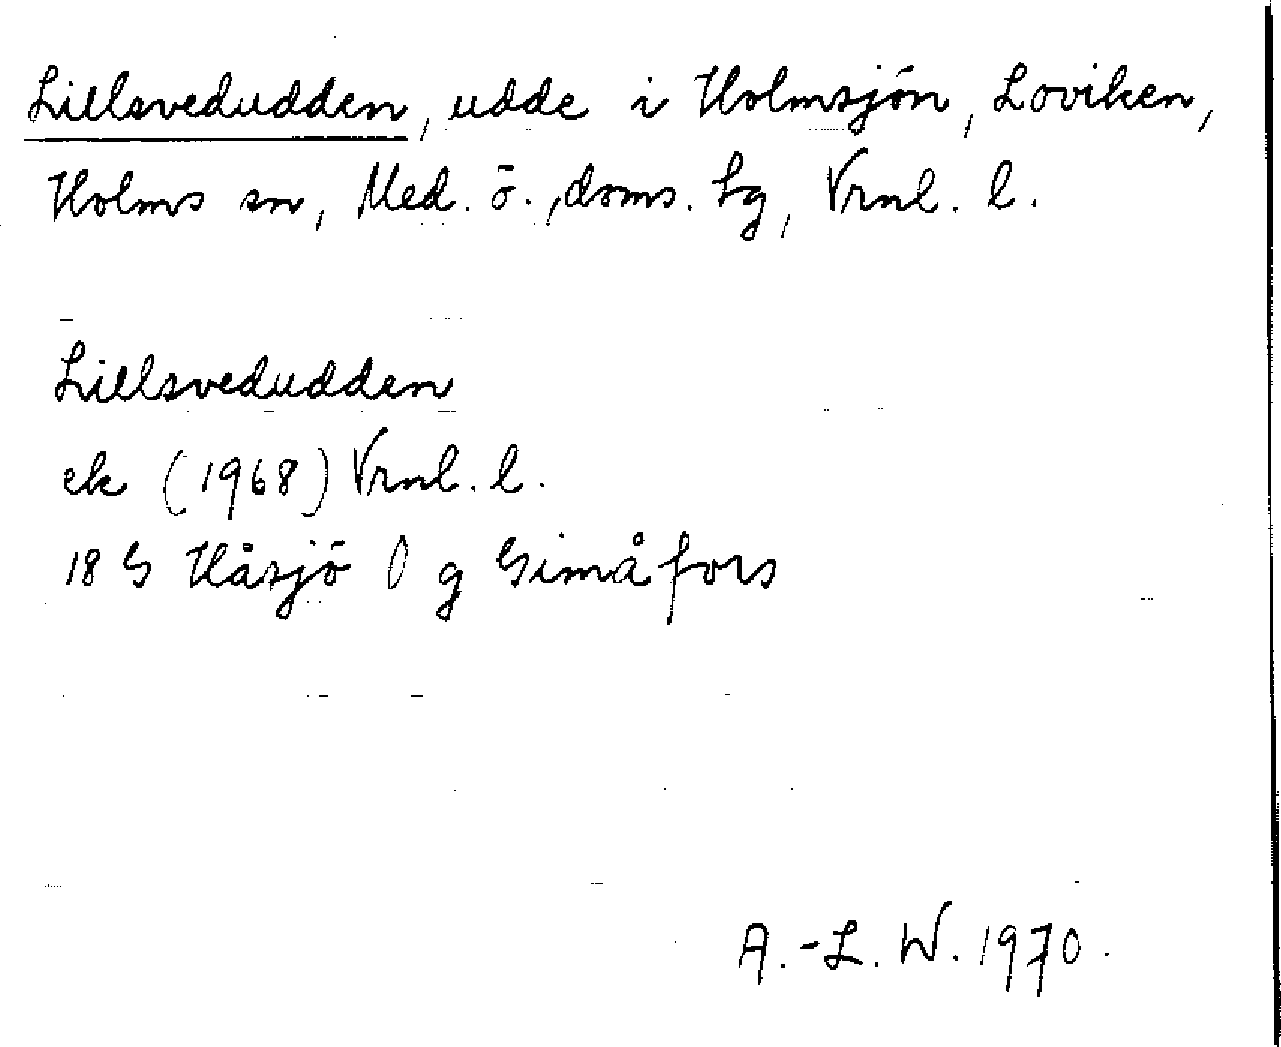 Lillsvedudden, udde i Holmsjön, Loviken,
Holms sn, Med. ö., doms. tg, Vrnl. l.
Lillsvedudden
ek (1968) Vrnl. l.
18 G Håsjö O g Gimåfors
A.-L. W. 1970.